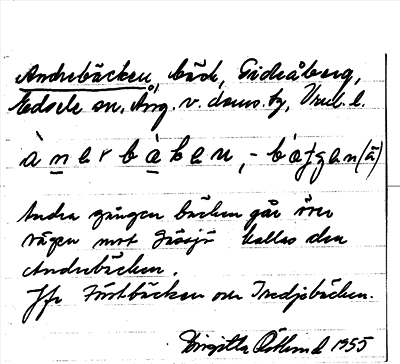 Andrebäcken, bäck, Gideåberg,
Edsele sn, Ång. v. doms. tg,
ànerbàken, - bàtjan (ä)
Andra gången bäcken går över
vägen mot Gåssjö kallas den
Andrebäcken.
Jfr Förstbäcken och Tredjebäcken.
Birgitta Östlund 1955